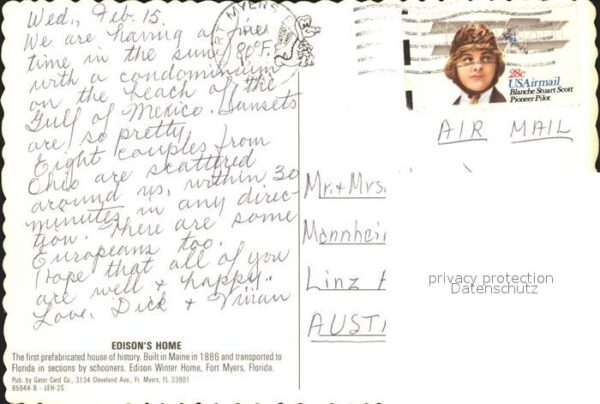 Wed., Feb. 15.
We are having a fine
time in the sun 80°F.
with a condominium
on the beach of the
Gulf of Mexico. Sunsets
are so pretty.
Eight couples from
Ohio are scattered
around us, within 30
minutes in any direc-
tion. There are some
Europeans too.
Hope that all of you
are well & happy.
Love, Dick & Vivian
FORT MYERS
28c
USAirmail
Blanche Stuart Scott
Pioneer Pilot
AIR MAIL
Mr. & Mrs.
Mannhei
Linz
AUST
privacy protection
Datenschutz
EDISON'S HOME
The first prefabricated house of history. Built in Maine in 1886 and transported to
Florida in sections by schooners. Edison Winter Home, Fort Myers, Florida.
Pub. by Gator Card Co., 3134 Cleveland Ave., Ft. Myers, FL 33901
85944-B - LEH-2S